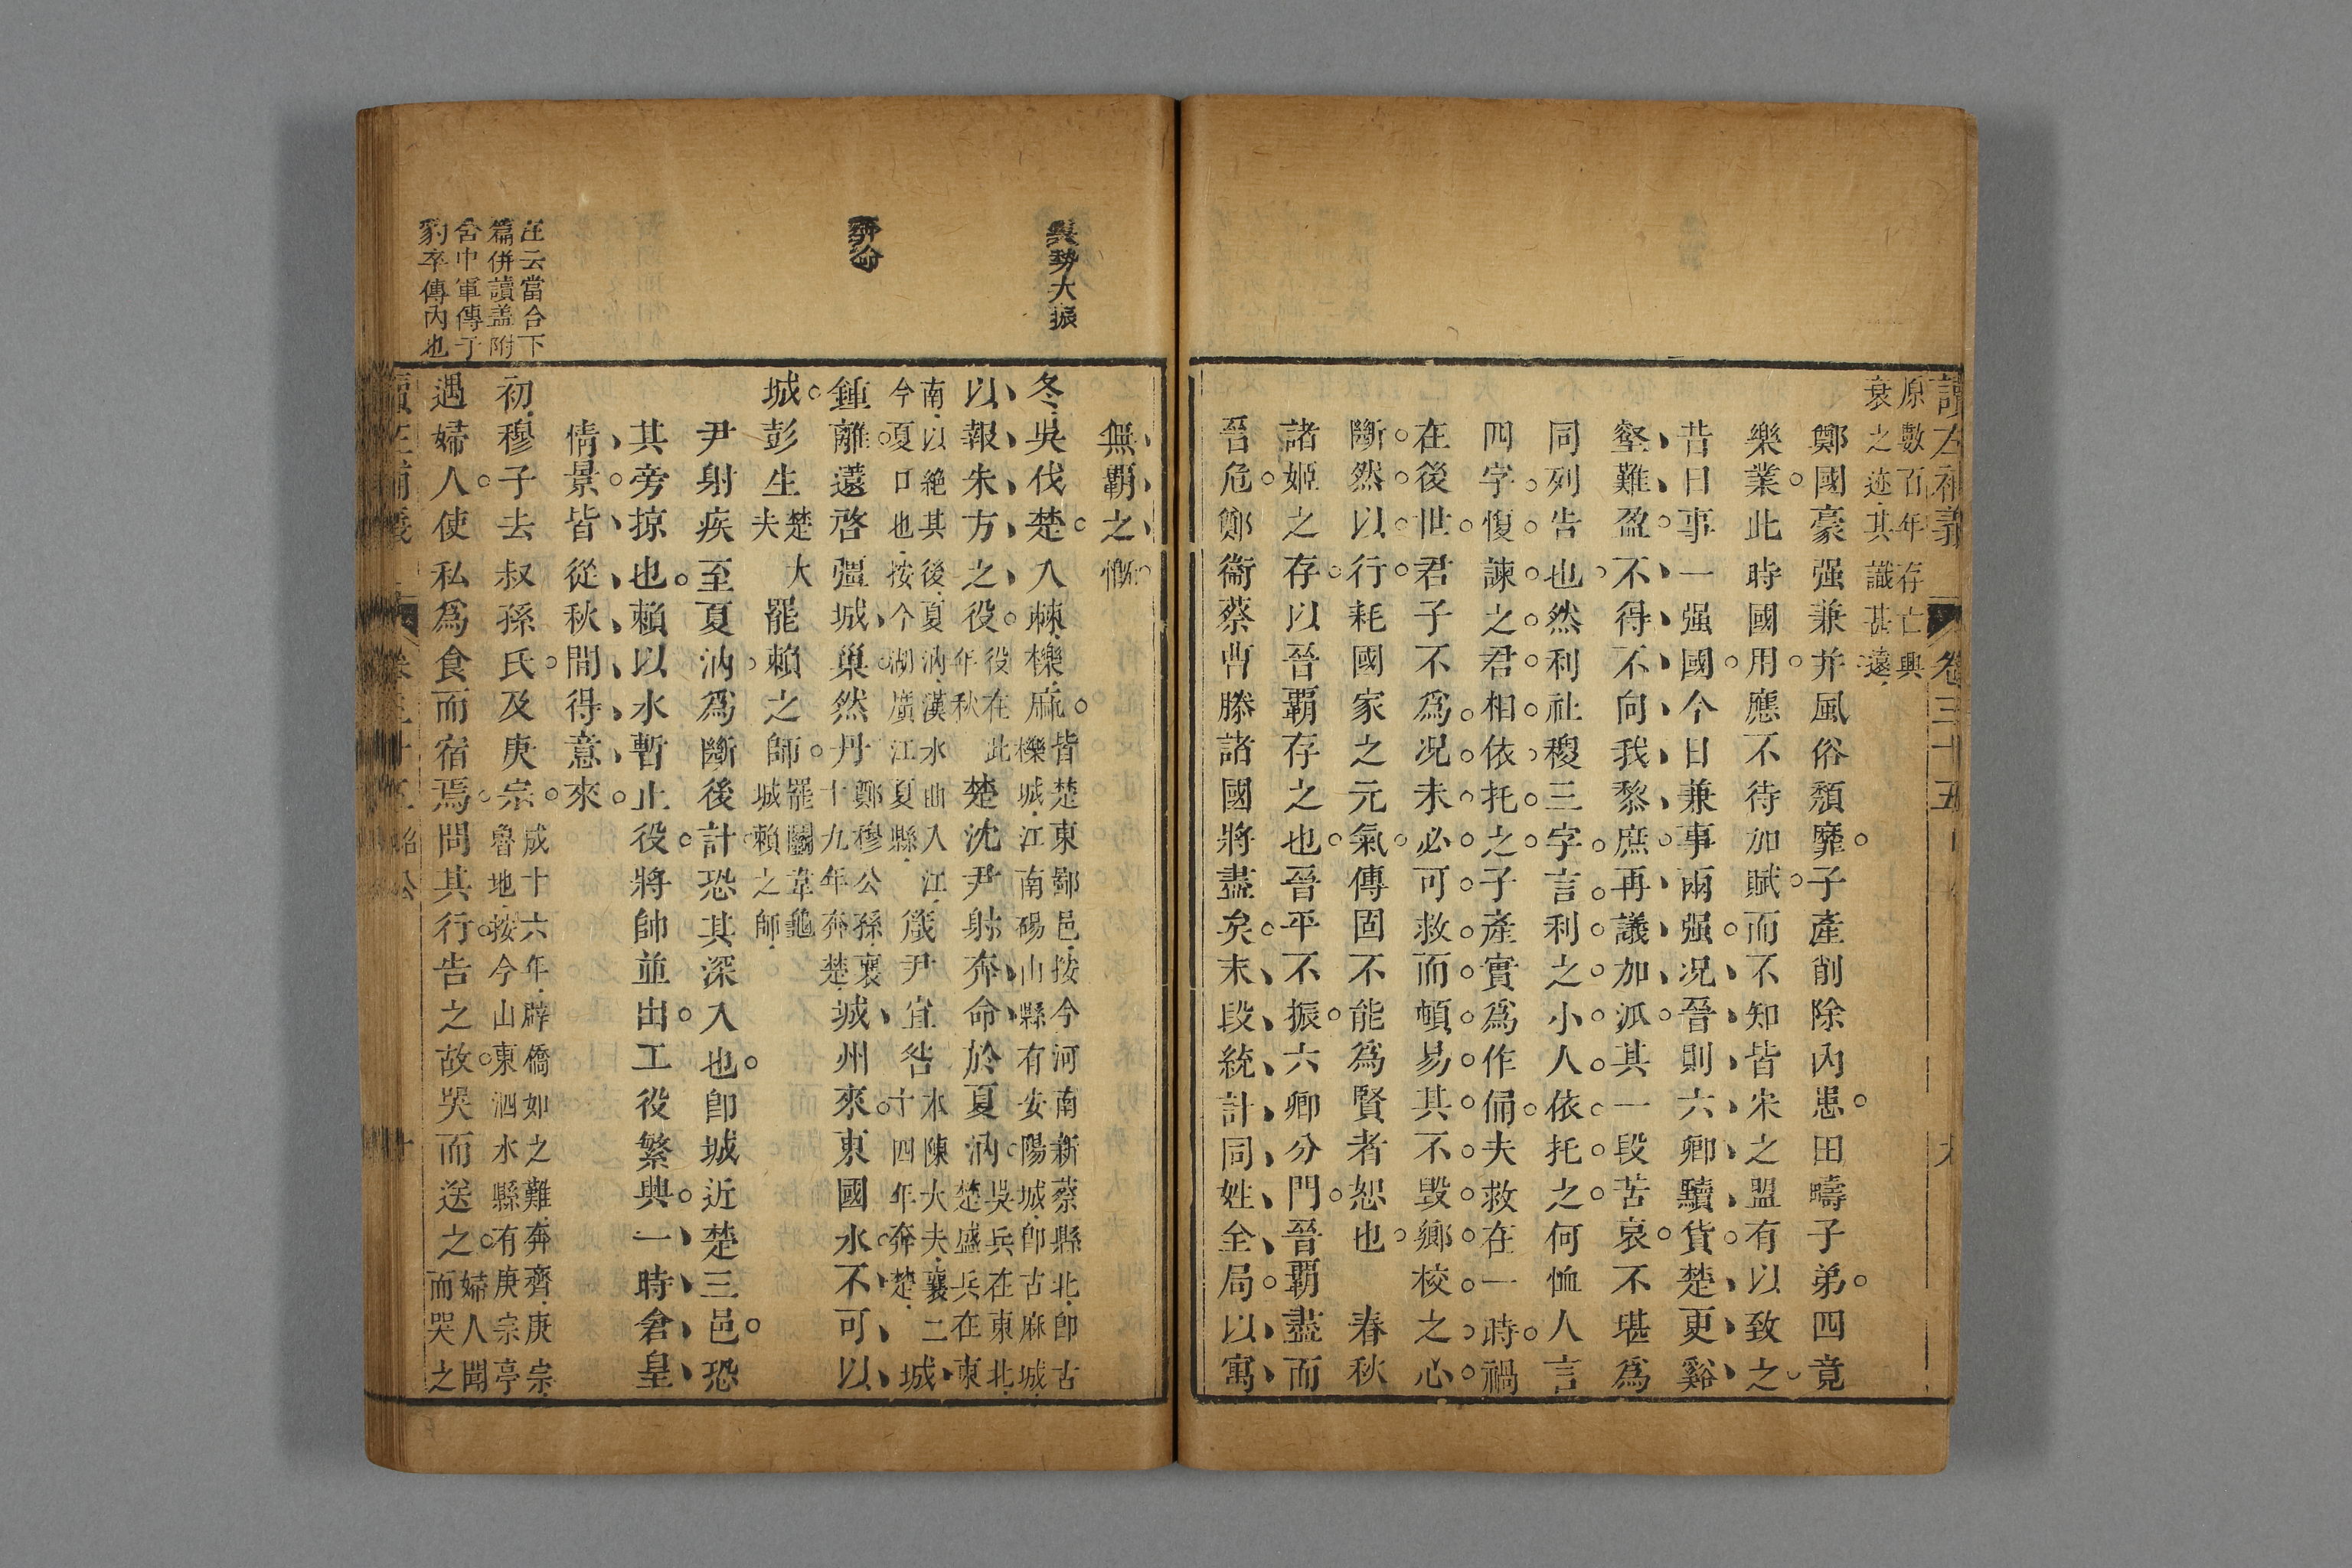 讀左補義 卷三十五 九
原數百年存亡興
衰之迹其識甚遠
鄭國豪强兼并風俗頽靡子產削除內患田疇子弟四竟
樂業此時國用應不待加賦而不知皆宋之盟有以致之
昔日事一强國今日兼事兩强况晉則六卿黷貨楚更谿
壑難盈不得不向我黎庶再議加派其一段苦哀不堪為
同列告也然利社稷三字言利之小人依托之何恤人言
四字愎諫之君相依托之子產實為作俑夫救在一時禍
在後世君子不為况未必可救而頓易其不毀鄉校之心
斷然以行耗國家之元氣傳固不能為賢者恕也 春秋
諸姬之存以晉覇存之也晉平不振六卿分門晉覇盡而
晉危鄭衞蔡曹滕諸國將盡矣末段統計同姓全局以寓
無覇之慨
吳勢大振
冬吳伐楚入棘櫟麻
皆楚東鄙邑按今河南新蔡縣北卽古
櫟城江南碭山縣有安陽城卽古麻城
以報朱方之役
役在此
年秋
楚沈尹射奔命於夏汭
吳兵在東北
楚盛兵在東
南以絶其後夏汭漢水曲入江
今夏口也按今湖廣江夏縣
箴尹宜咎
本陳大夫襄二
十四年奔楚
城
鍾離薳啓彊城巢然丹
鄭穆公孫襄
十九年奔楚
城州來東國水不可以
奔命
城彭生
楚大
夫
罷賴之師
罷鬭韋龜
城賴之師
尹射疾至夏汭為斷後計恐其深入也卽城近楚三邑恐
其旁掠也賴以水暫止役將帥並出工役繁興一時倉皇
情景皆從秋間得意來
汪云當合下
篇併讀盖附
舍中軍傳于
豹卒傳內也
初穆子去叔孫氏及庚宗
成十六年辟僑如之難奔齊庚宗
魯地按今山東泗水縣有庚宗亭
遇婦人使私為食而宿焉問其行告之故哭而送之
婦人聞
而哭之
讀左補義 卷三十五 昭公 十